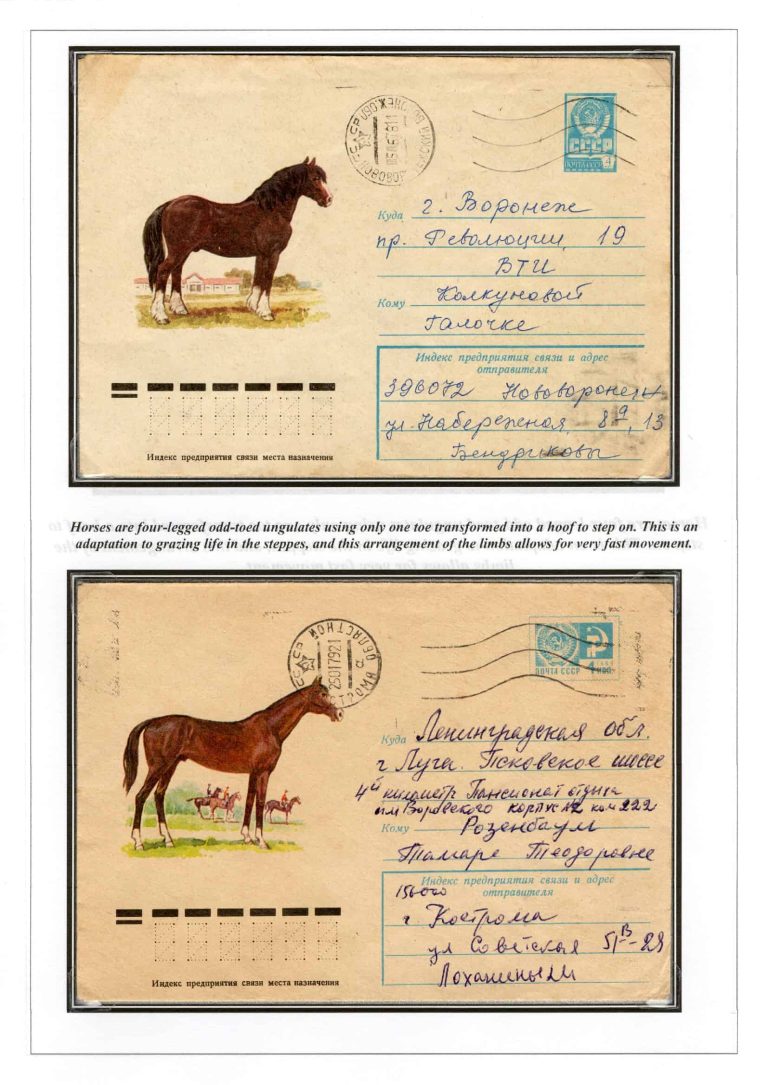 СССР НОВОВОРОНЕЖ ВОРОНЕЖ.ОБЛ
СССР
ПОЧТА СССР 4
Куда г. Воронеж
пр. Революции, 19
ВТИ
Кому Колкуновой
Галочке
Индекс предприятия связи и адрес
отправителя
396072 Нововоронеж
ул. Набережная, 8а, 13
Бендриковы
Индекс предприятия связи места назначения
Horses are four-legged odd-toed ungulates using only one toe transformed into a hoof to step on. This is an
adaptation to grazing life in the steppes, and this arrangement of the limbs allows for very fast movement.
СССР КОСТРОМА ОБЛАСТНОЙ
25017921
а
ПОЧТА СССР 4 КОП
Куда Ленинградская обл.
г Луга. Псковское шоссе
4й километр Пансионат отдыха
им Воровского корпус №2 ком 222
Кому Розенбаум
Тамаре Теодоровне
Индекс предприятия связи и адрес
отправителя
156000
г Кострома
ул Советская 51В-29
Лоханиных
Индекс предприятия связи места назначения